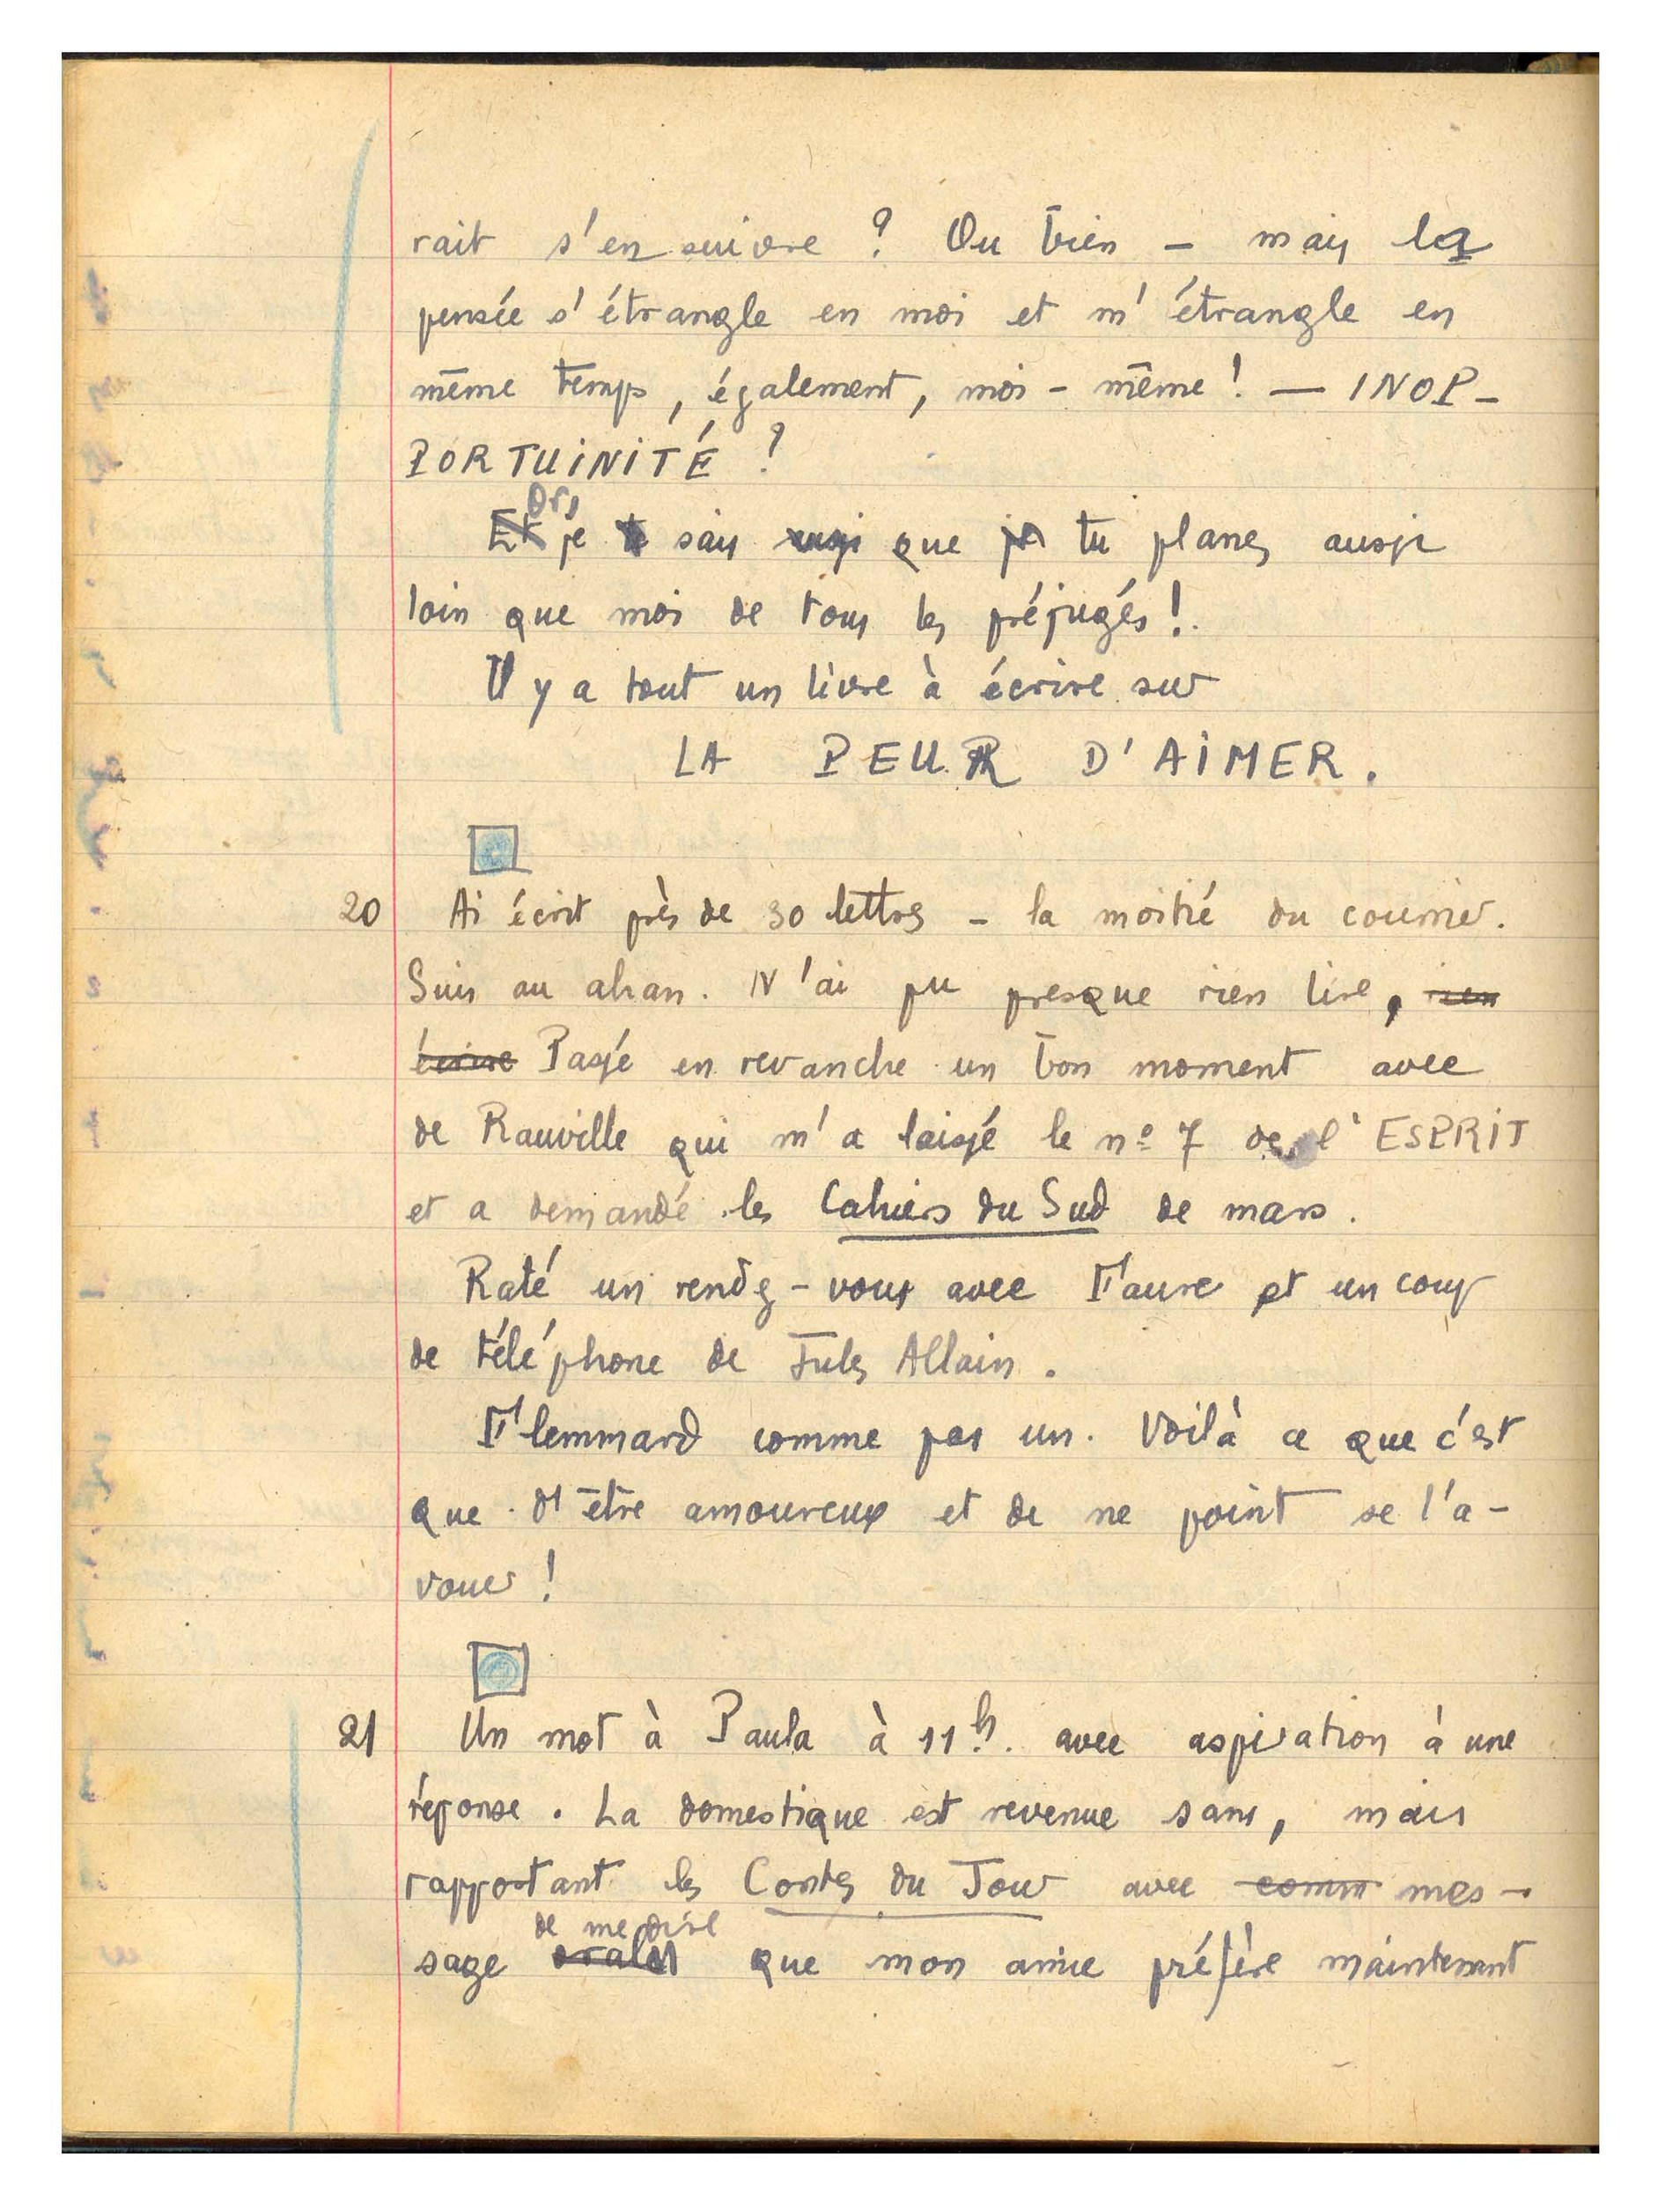 rait s'en suivre ? Ou bien – mais la
pensée s'étrangle en moi et m'étrangle en
même temps, également, moi-même ! — INOP-
PORTUINITÉ ?
Or,
Et je sais que tu planes aussi
loin que moi de tous les préjugés !
Il y a tout un livre à écrire sur
LA PEUR D'AIMER.
20 Ai écrit près de 30 lettres – la moitié du courrier.
Suis au ahan. N'ai pu presque rien lire, rien
écrire Passé en revanche un bon moment avec
de Rauville qui m'a laissé le nº 7 de l'ESPRIT
et a demandé les Cahiers du Sud de mars.
Raté un rendez-vous avec Faure et un coup
de téléphone de Jules Allain.
Flemmard comme pas un. Voilà ce que c'est
que d'être amoureux et de ne point se l'a-
vouer !
21 Un mot à Paula à 11h. avec aspiration à une
réponse. La domestique est revenue sans, mais
rapportant les Contes du Jour avec comm mes-
de me dire
sage oral que mon amie préfère maintenant